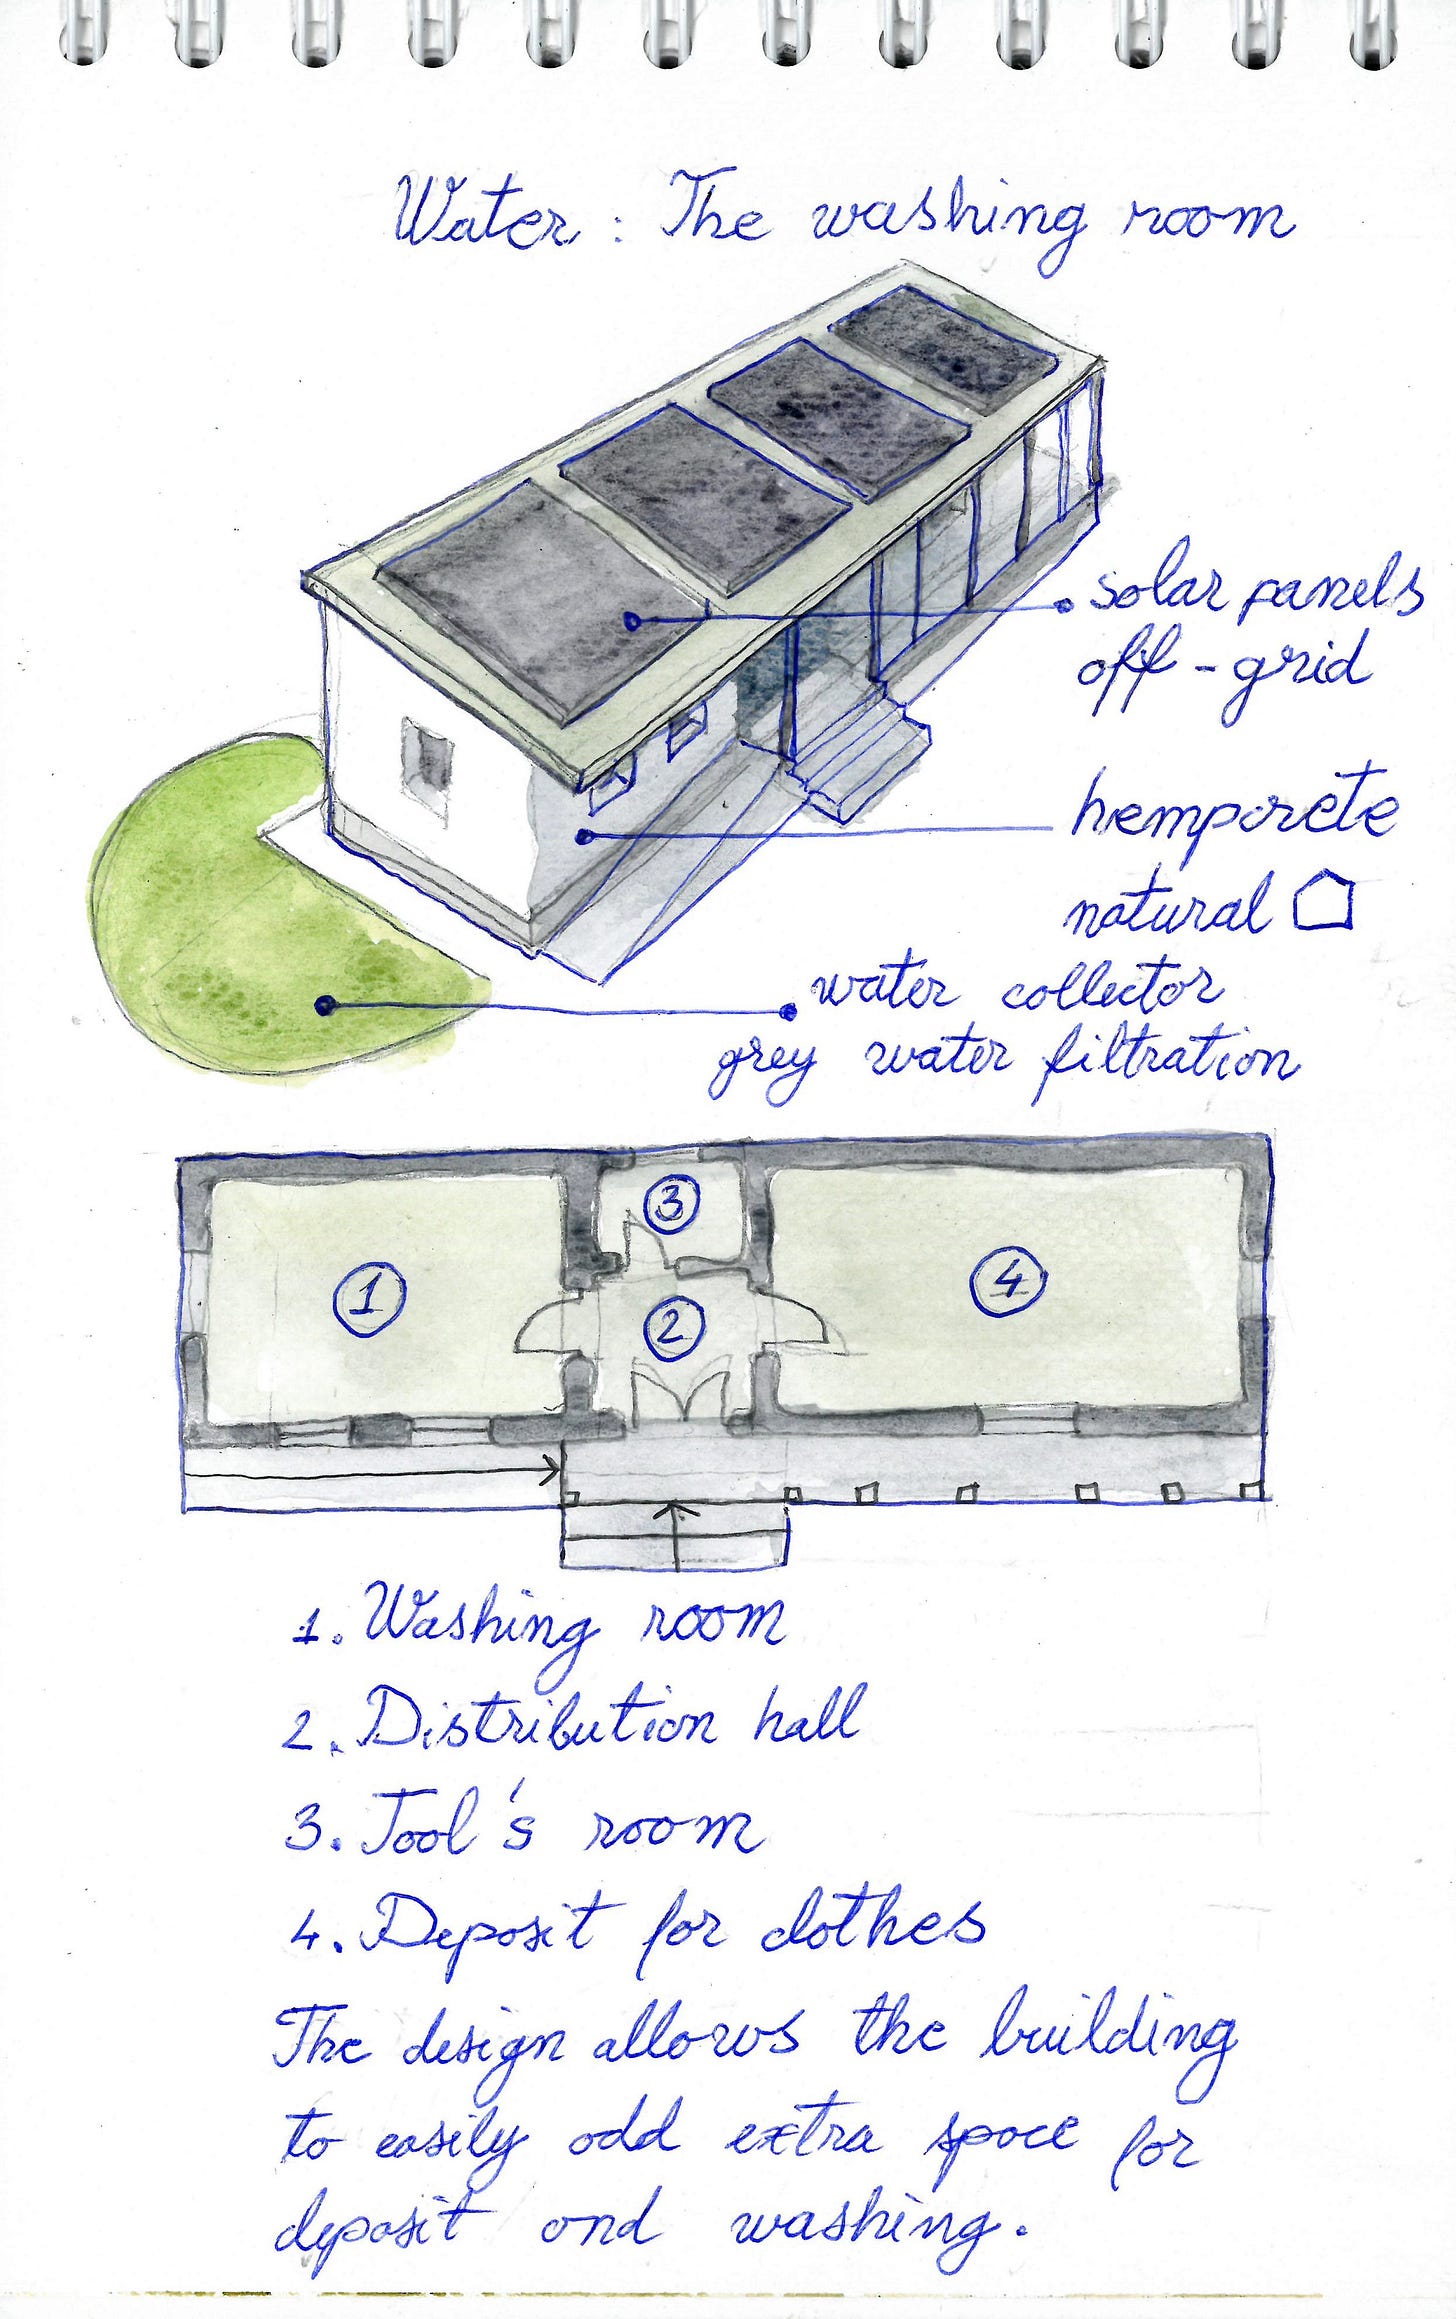 Water: The washing room
solar panels
off-grid
hempcrete
natural
water collector
grey water filtration
3
1
4
2
1. Washing room
2. Distribution hall
3. Tool's room
4. Deposit for clothes
The design allows the building
to easily add extra space for
deposit and washing.